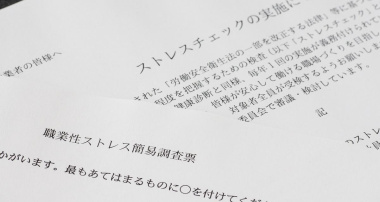 業者の皆様へ
ストレスチェックの実施に
された「労働安全衛生法の一部を改正する法律」等に基づ
程度を把握するための検査(以下「ストレスチェック」と
健康診断と同様、毎年1回の実施が義務付けられて
皆様が安心して働ける職場づくりを目指し
対象者全員が受検するようお願いしま
委員会で審議・検討しています。
記
のスト
職業性ストレス簡易調査票
かがいます。最もあてはまるものに○を付けてくだ